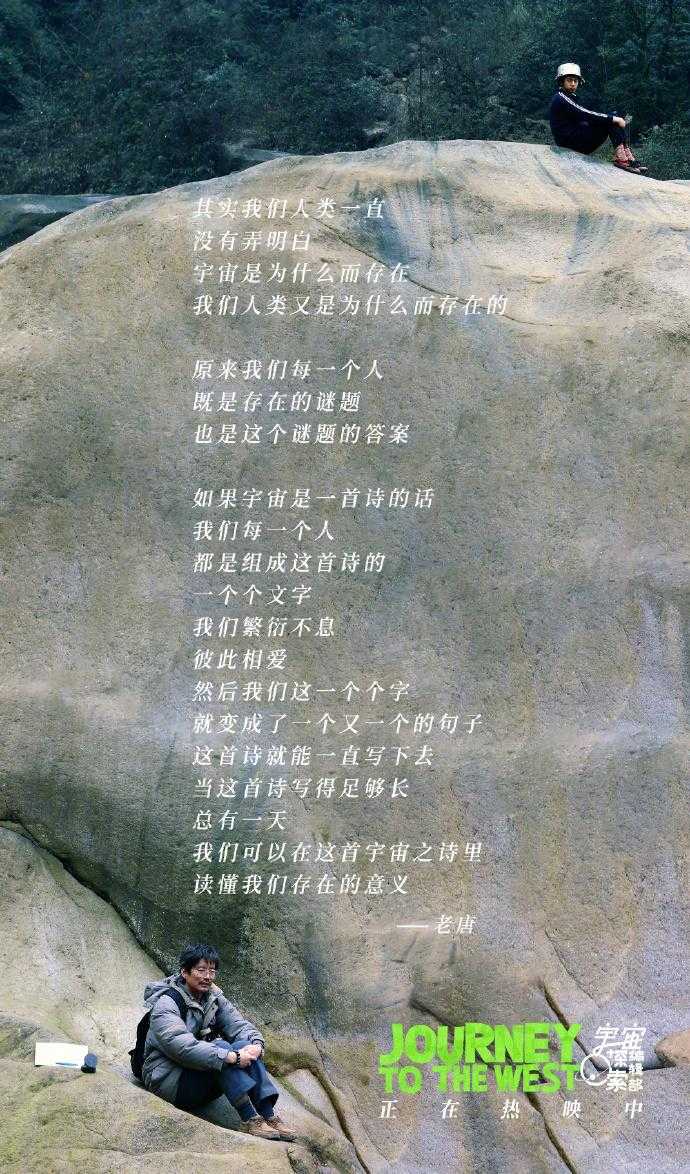 其实我们人类一直
没有弄明白
宇宙是为什么而存在
我们人类又是为什么而存在的
原来我们每一个人
既是存在的谜题
也是这个谜题的答案
如果宇宙是一首诗的话
我们每一个人
都是组成这首诗的
一个个文字
我们繁衍不息
彼此相爱
然后我们这一个个字
就变成了一个又一个的句子
这首诗就能一直写下去
当这首诗写得足够长
总有一天
我们可以在这首宇宙之诗里
读懂我们存在的意义
——老唐
JOURNEY
TO THE WEST
宇宙
探索
编辑部
正在热映中